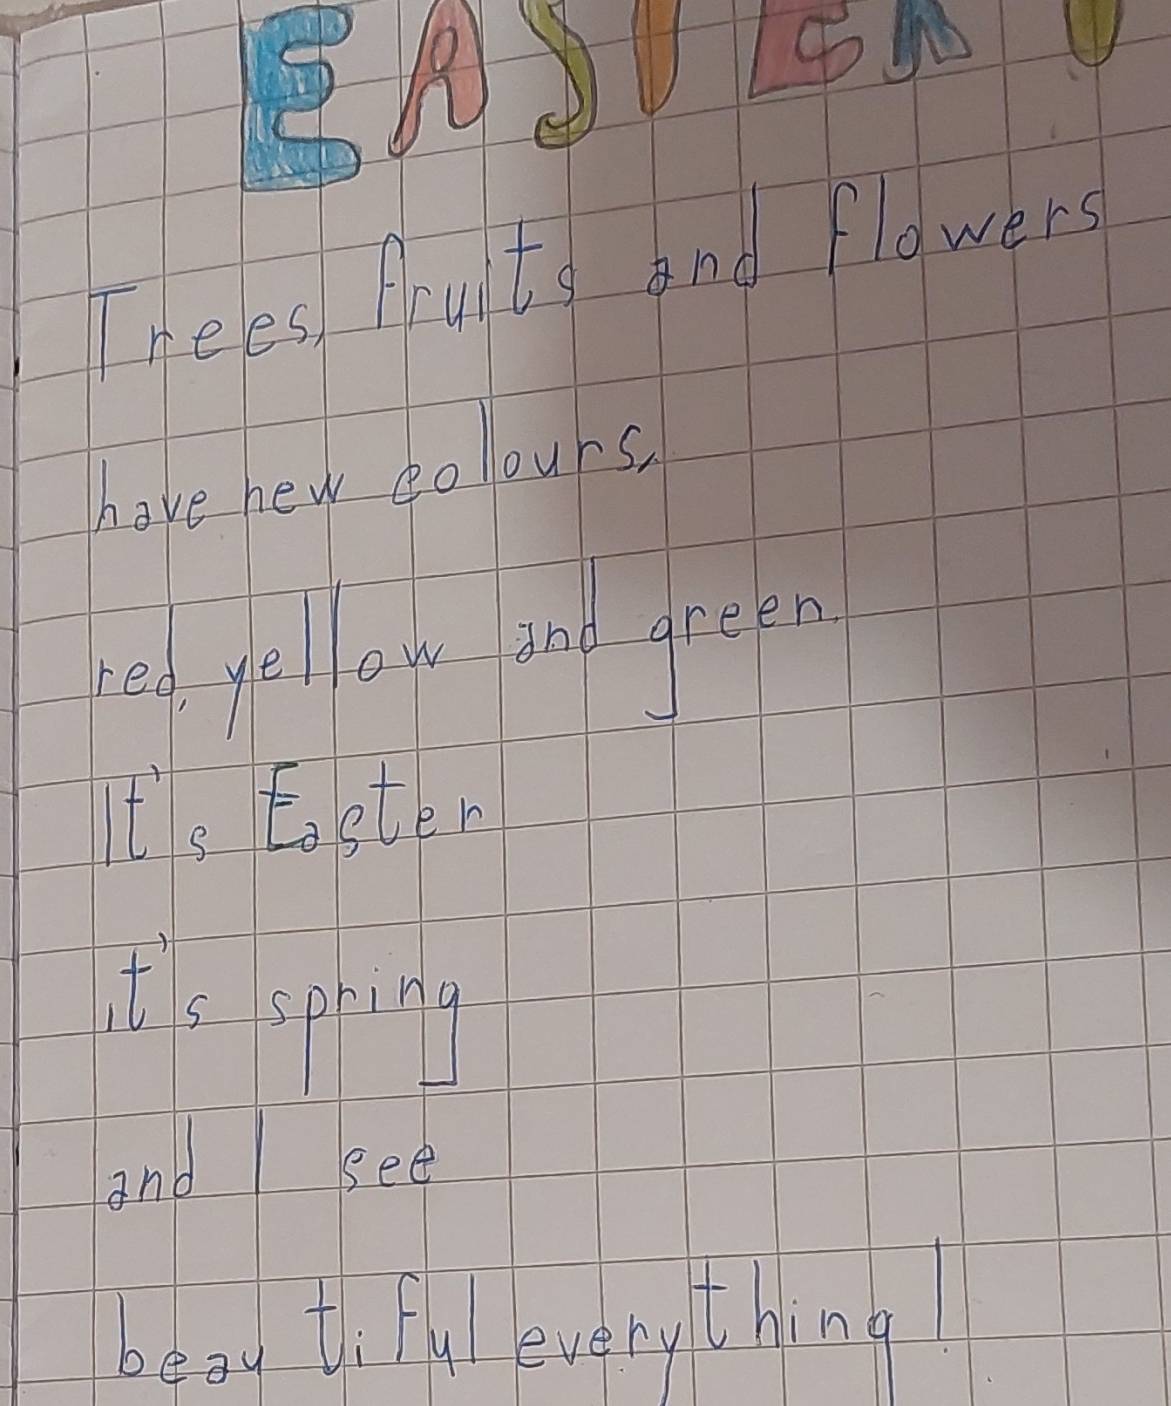 EASTER
Trees, fruits and flowers
have new colours,
red, yellow and green.
It's Easter
it's spring
and I see
beautiful everything!